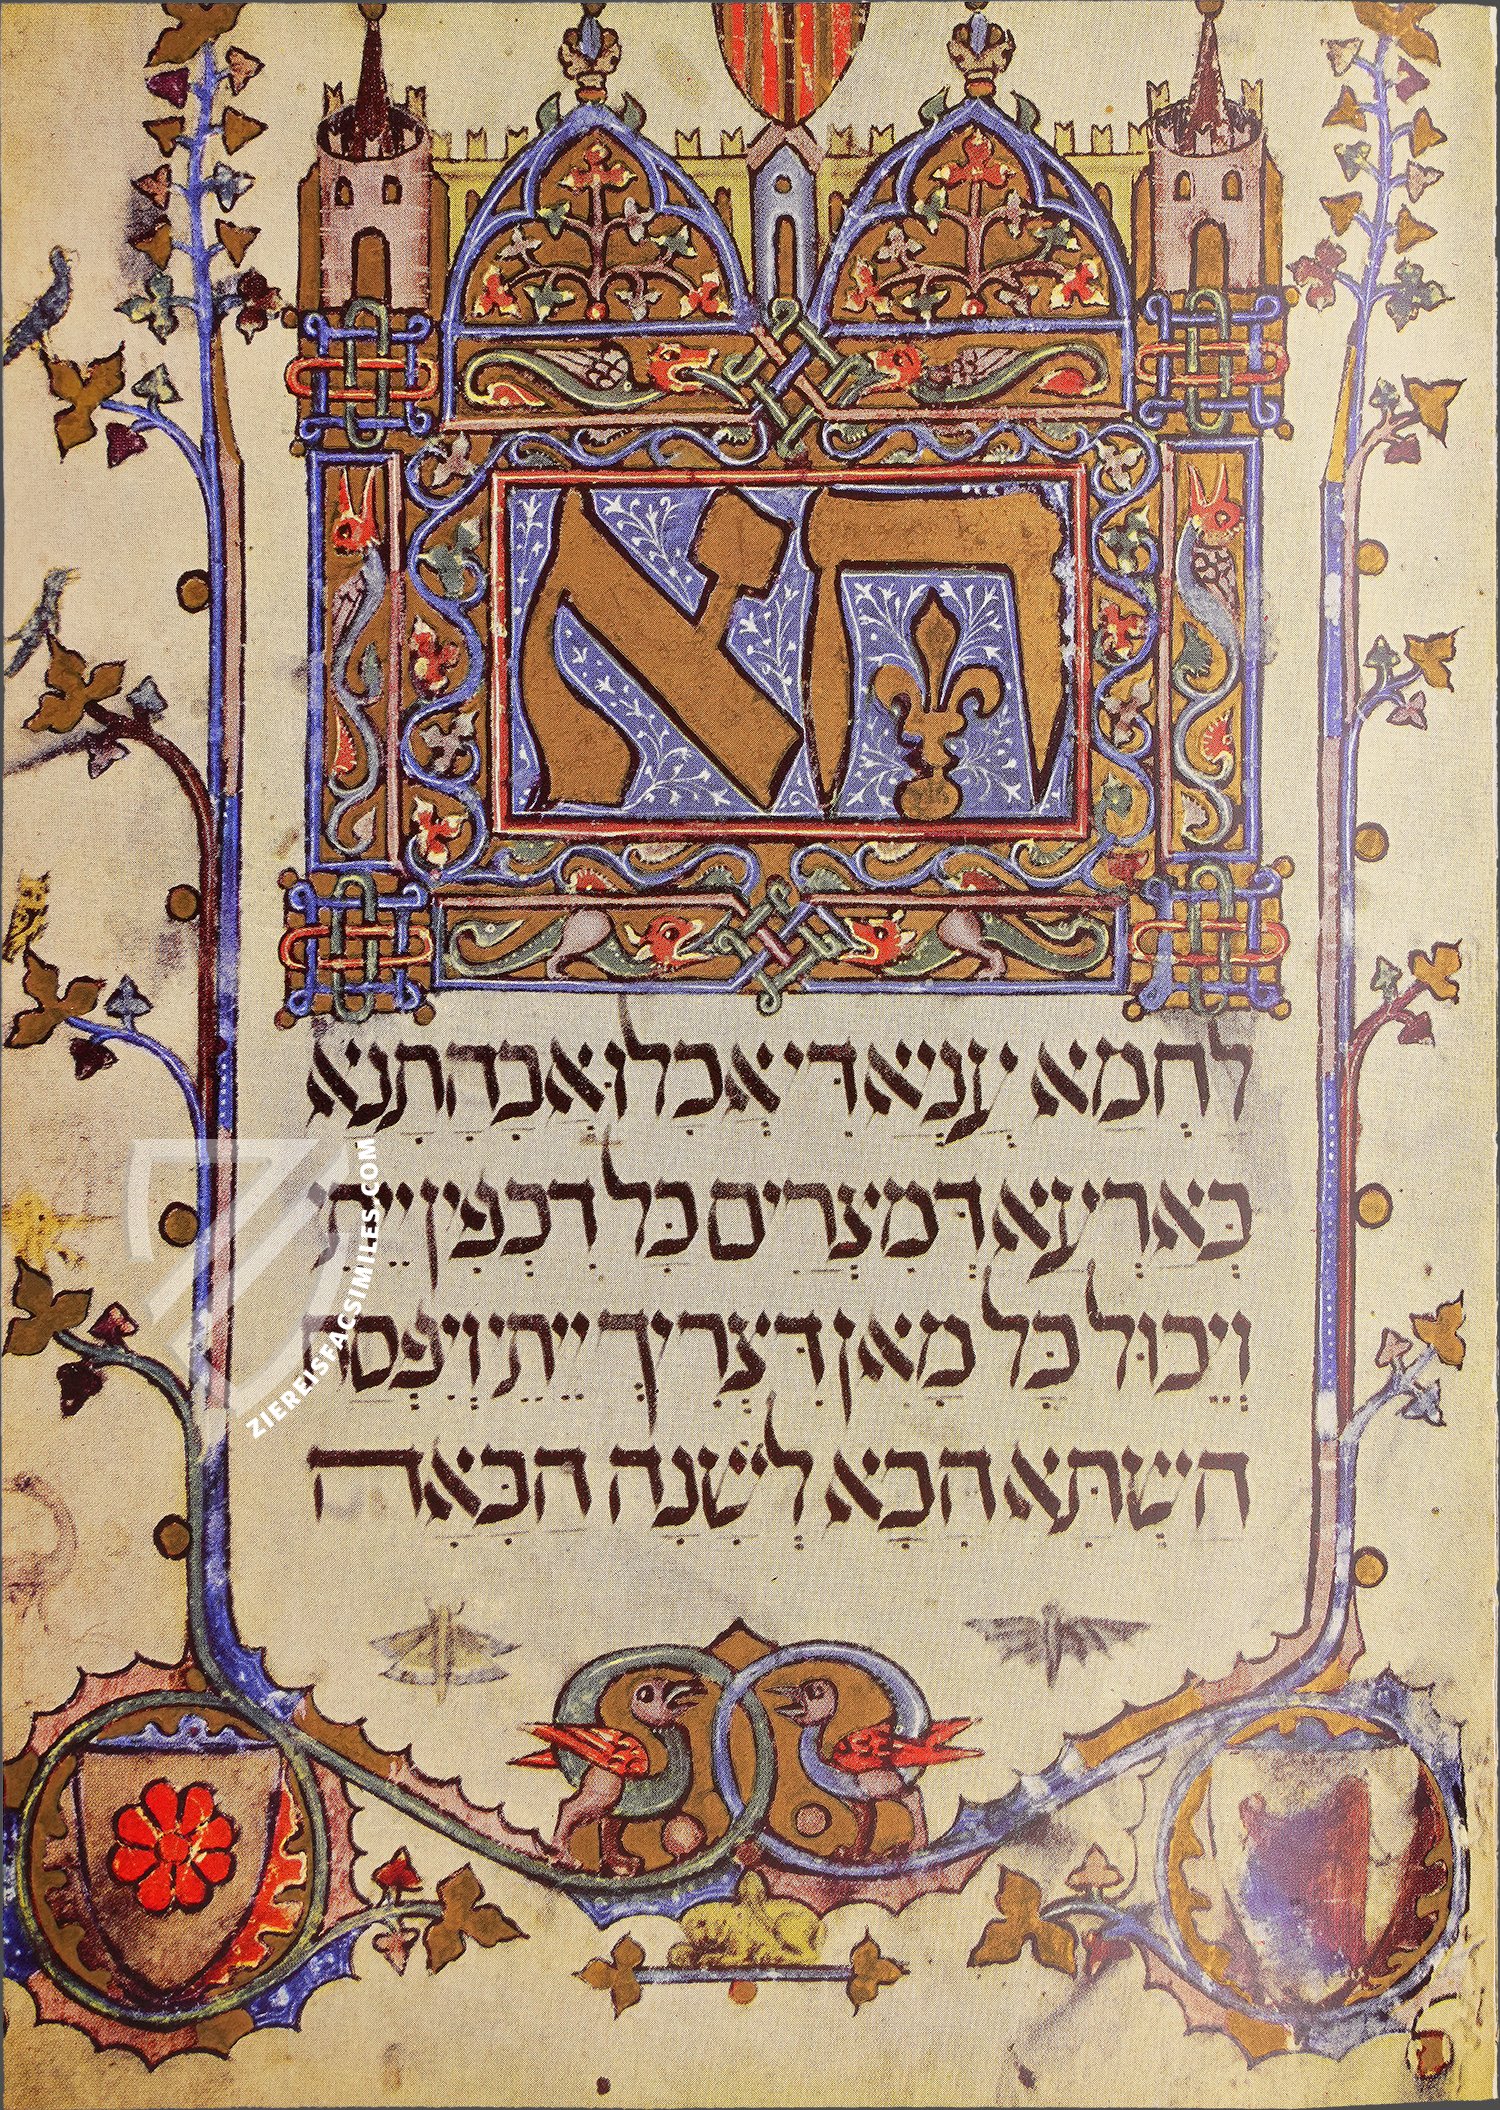 הא
לחמא עניא די אכלו אבהתנא
בארעא דמצרים כל דכפין ייתי
ויכול כל מאן דצריך ייתי ויפסח
השתא הכא לשנה הבאה
ZIEREISFACSIMILES.COM